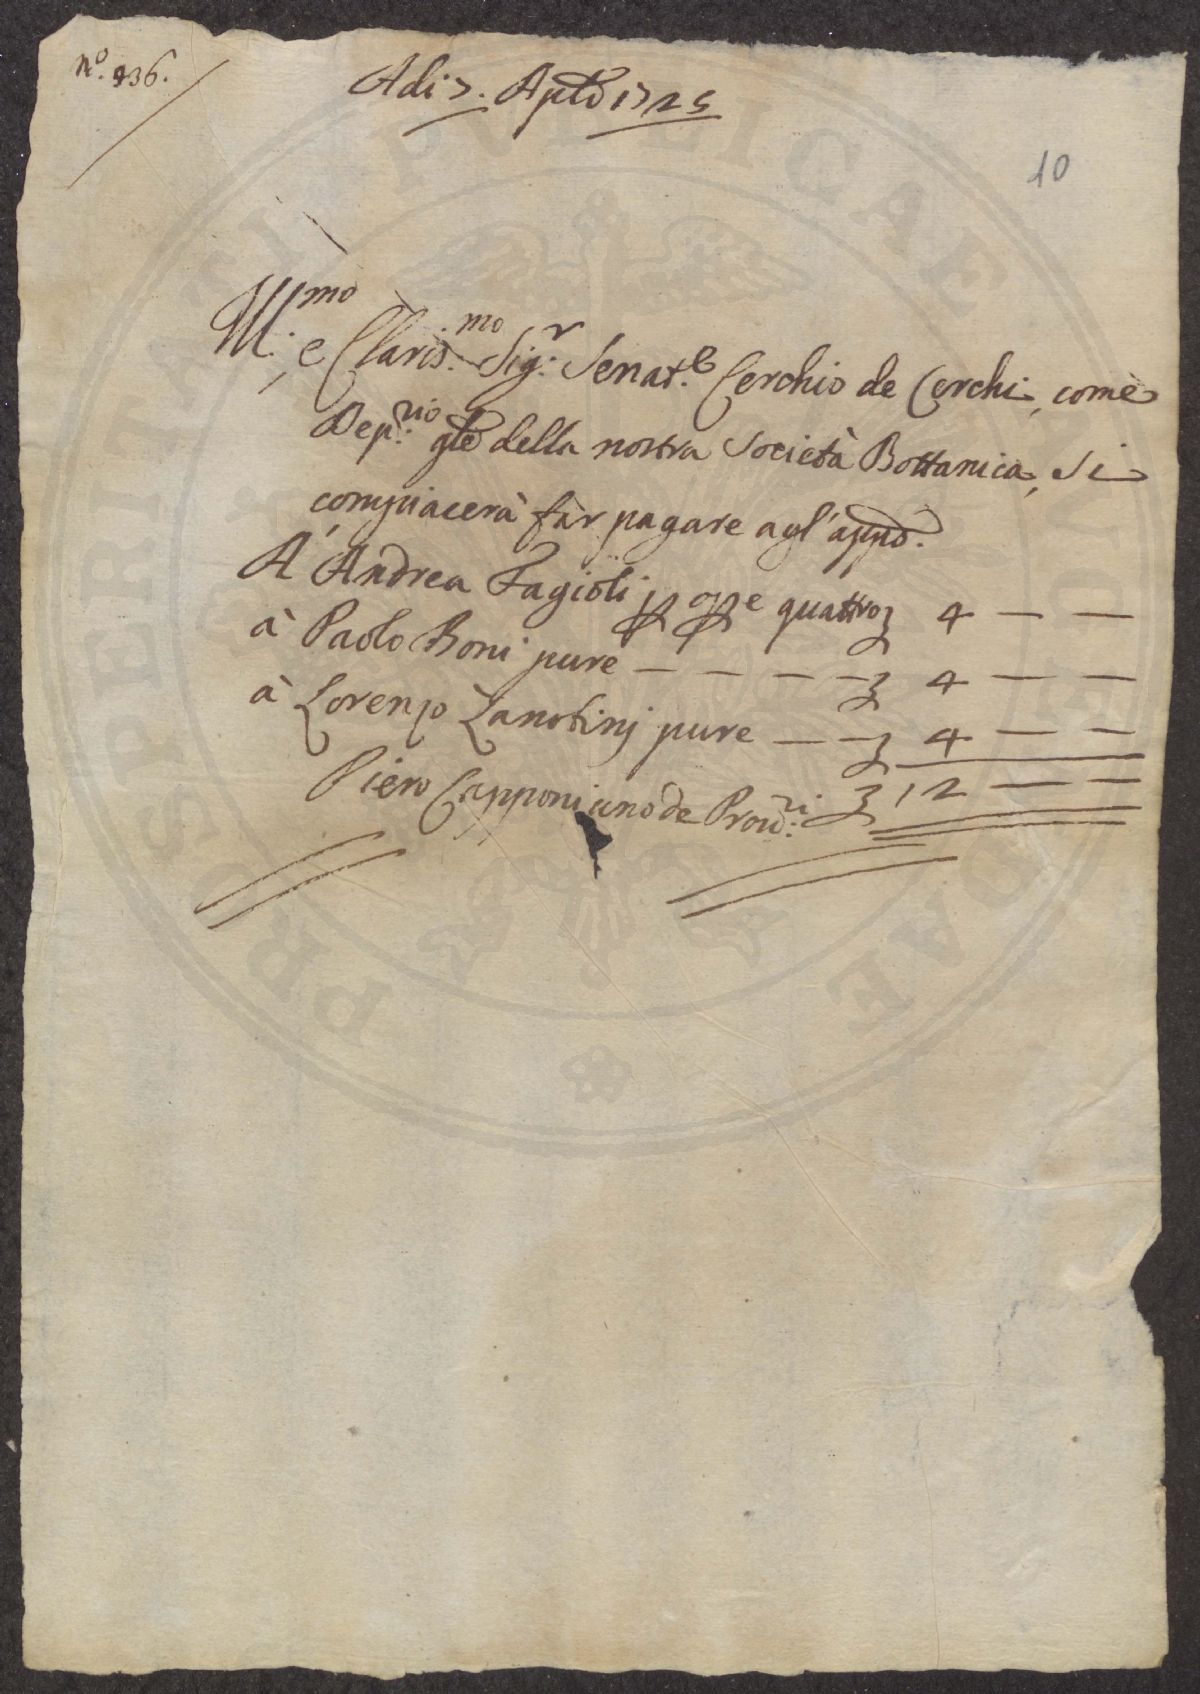 N.º 936.
Adi 7. Aple 1725
10
Ill.mo e Claris.mo Sig.r Senat.e Cerchio de Cerchi, come
Dep.rio gle della nostra Società Bottanica, Si
compiacerà far pagare agl' appo.
A Andrea Fagioli p ope quattro 4 — —
à Paolo Boni pure — — — — 4 — —
à Lorenzo Zanobinj pure — — 4 — —
Piero Capponi uno de Prov.ri 12 — —